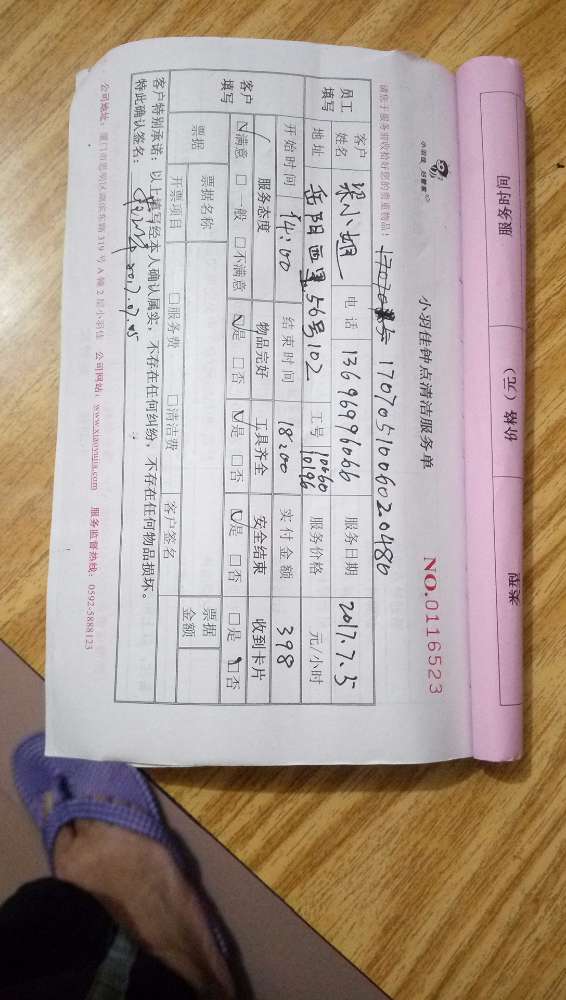 服务时间
价格（元）
小羽佳 好管家
小羽佳钟点清洁服务单
NO.0116523
请您于服务前收拾好您的贵重物品！
1707051006020480
员工填写 客户姓名 梁小姐 电话 13696996066 服务日期 2017.7.5
地址 岳阳西里56号102 工号 10660 10196 服务价格 元/小时
客户填写 开始时间 14:00 结束时间 18:00 实付金额 398
服务态度 物品完好 工具齐全 安全结束 收到卡片
☑满意 □一般 □不满意 ☑是 □否 ☑是 □否 ☑是 □否 □是 ☑否
票据 票据名称 票据金额
开票项目 □服务费 □清洁费 客户签名
客户特别承诺：以上填写经本人确认属实，不存在任何纠纷，不存在任何物品损坏。
特此确认签名： 2017.07.05
公司地址：厦门市思明区湖滨东路319号A幢2层小羽佳 公司网站：www.xiaoyujia.com 服务监督热线：0592-5888123